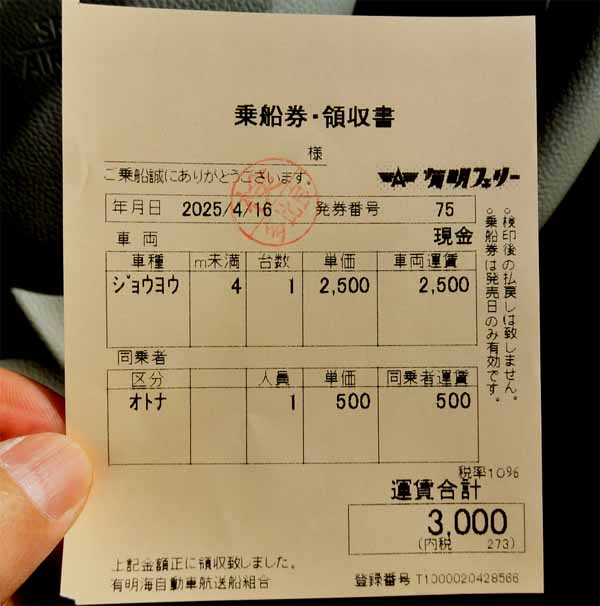 乗船券・領収書
様
ご乗船誠にありがとうございます。
有明フェリー
年月日 2025/4/16 発券番号 75
車両 現金
車種 m未満 台数 単価 車両運賃
ジョウヨウ 4 1 2,500 2,500
同乗者
区分 人員 単価 同乗者運賃
オトナ 1 500 500
。検印後の払戻しは致しません。
。乗船券は発売日のみ有効です。
税率10%
運賃合計
3,000
(内税 273)
上記金額正に領収致しました。
有明海自動車航送船組合
登録番号 T1000020428566